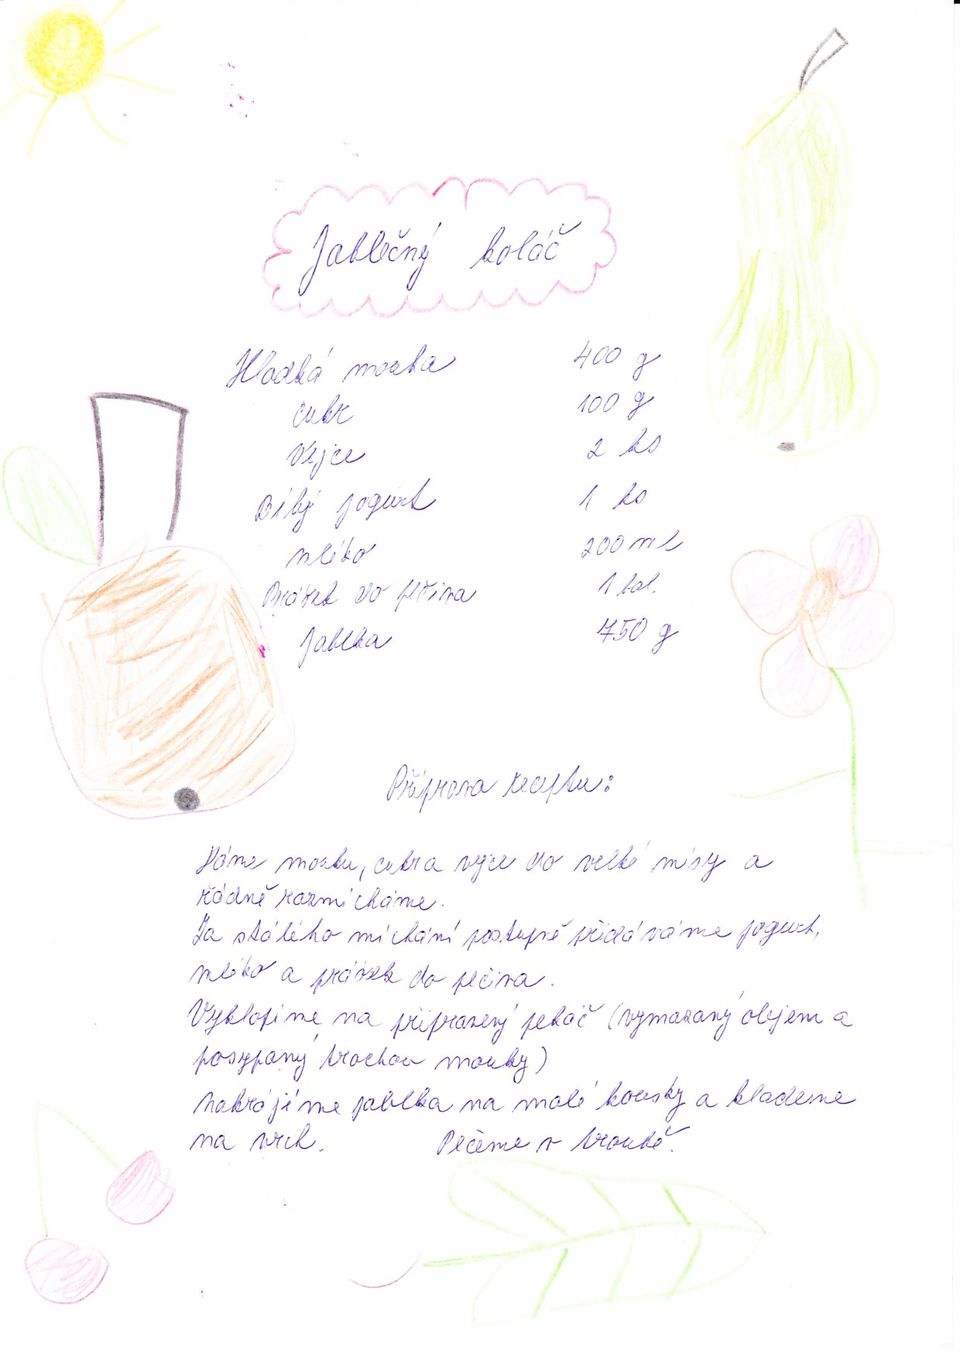 Jablečný koláč
Hladká mouka 400 g
cukr 100 g
Vejce 2 ks
Bílý jogurt 1 ks
mléko 200 ml
Prášek do pečiva 1 bal.
Jablka 750 g
Příprava receptu:
Dáme mouku, cukr a vejce do velké mísy a
řádně rozmícháme.
Za stálého míchání postupně přidáváme jogurt,
mléko a prášek do pečiva.
Vyklopíme na připravený pekáč (vymazaný olejem a
posypaný trochou mouky)
nakrájíme jablka na malé kousky a klademe
na vrch. Pečeme v troubě.